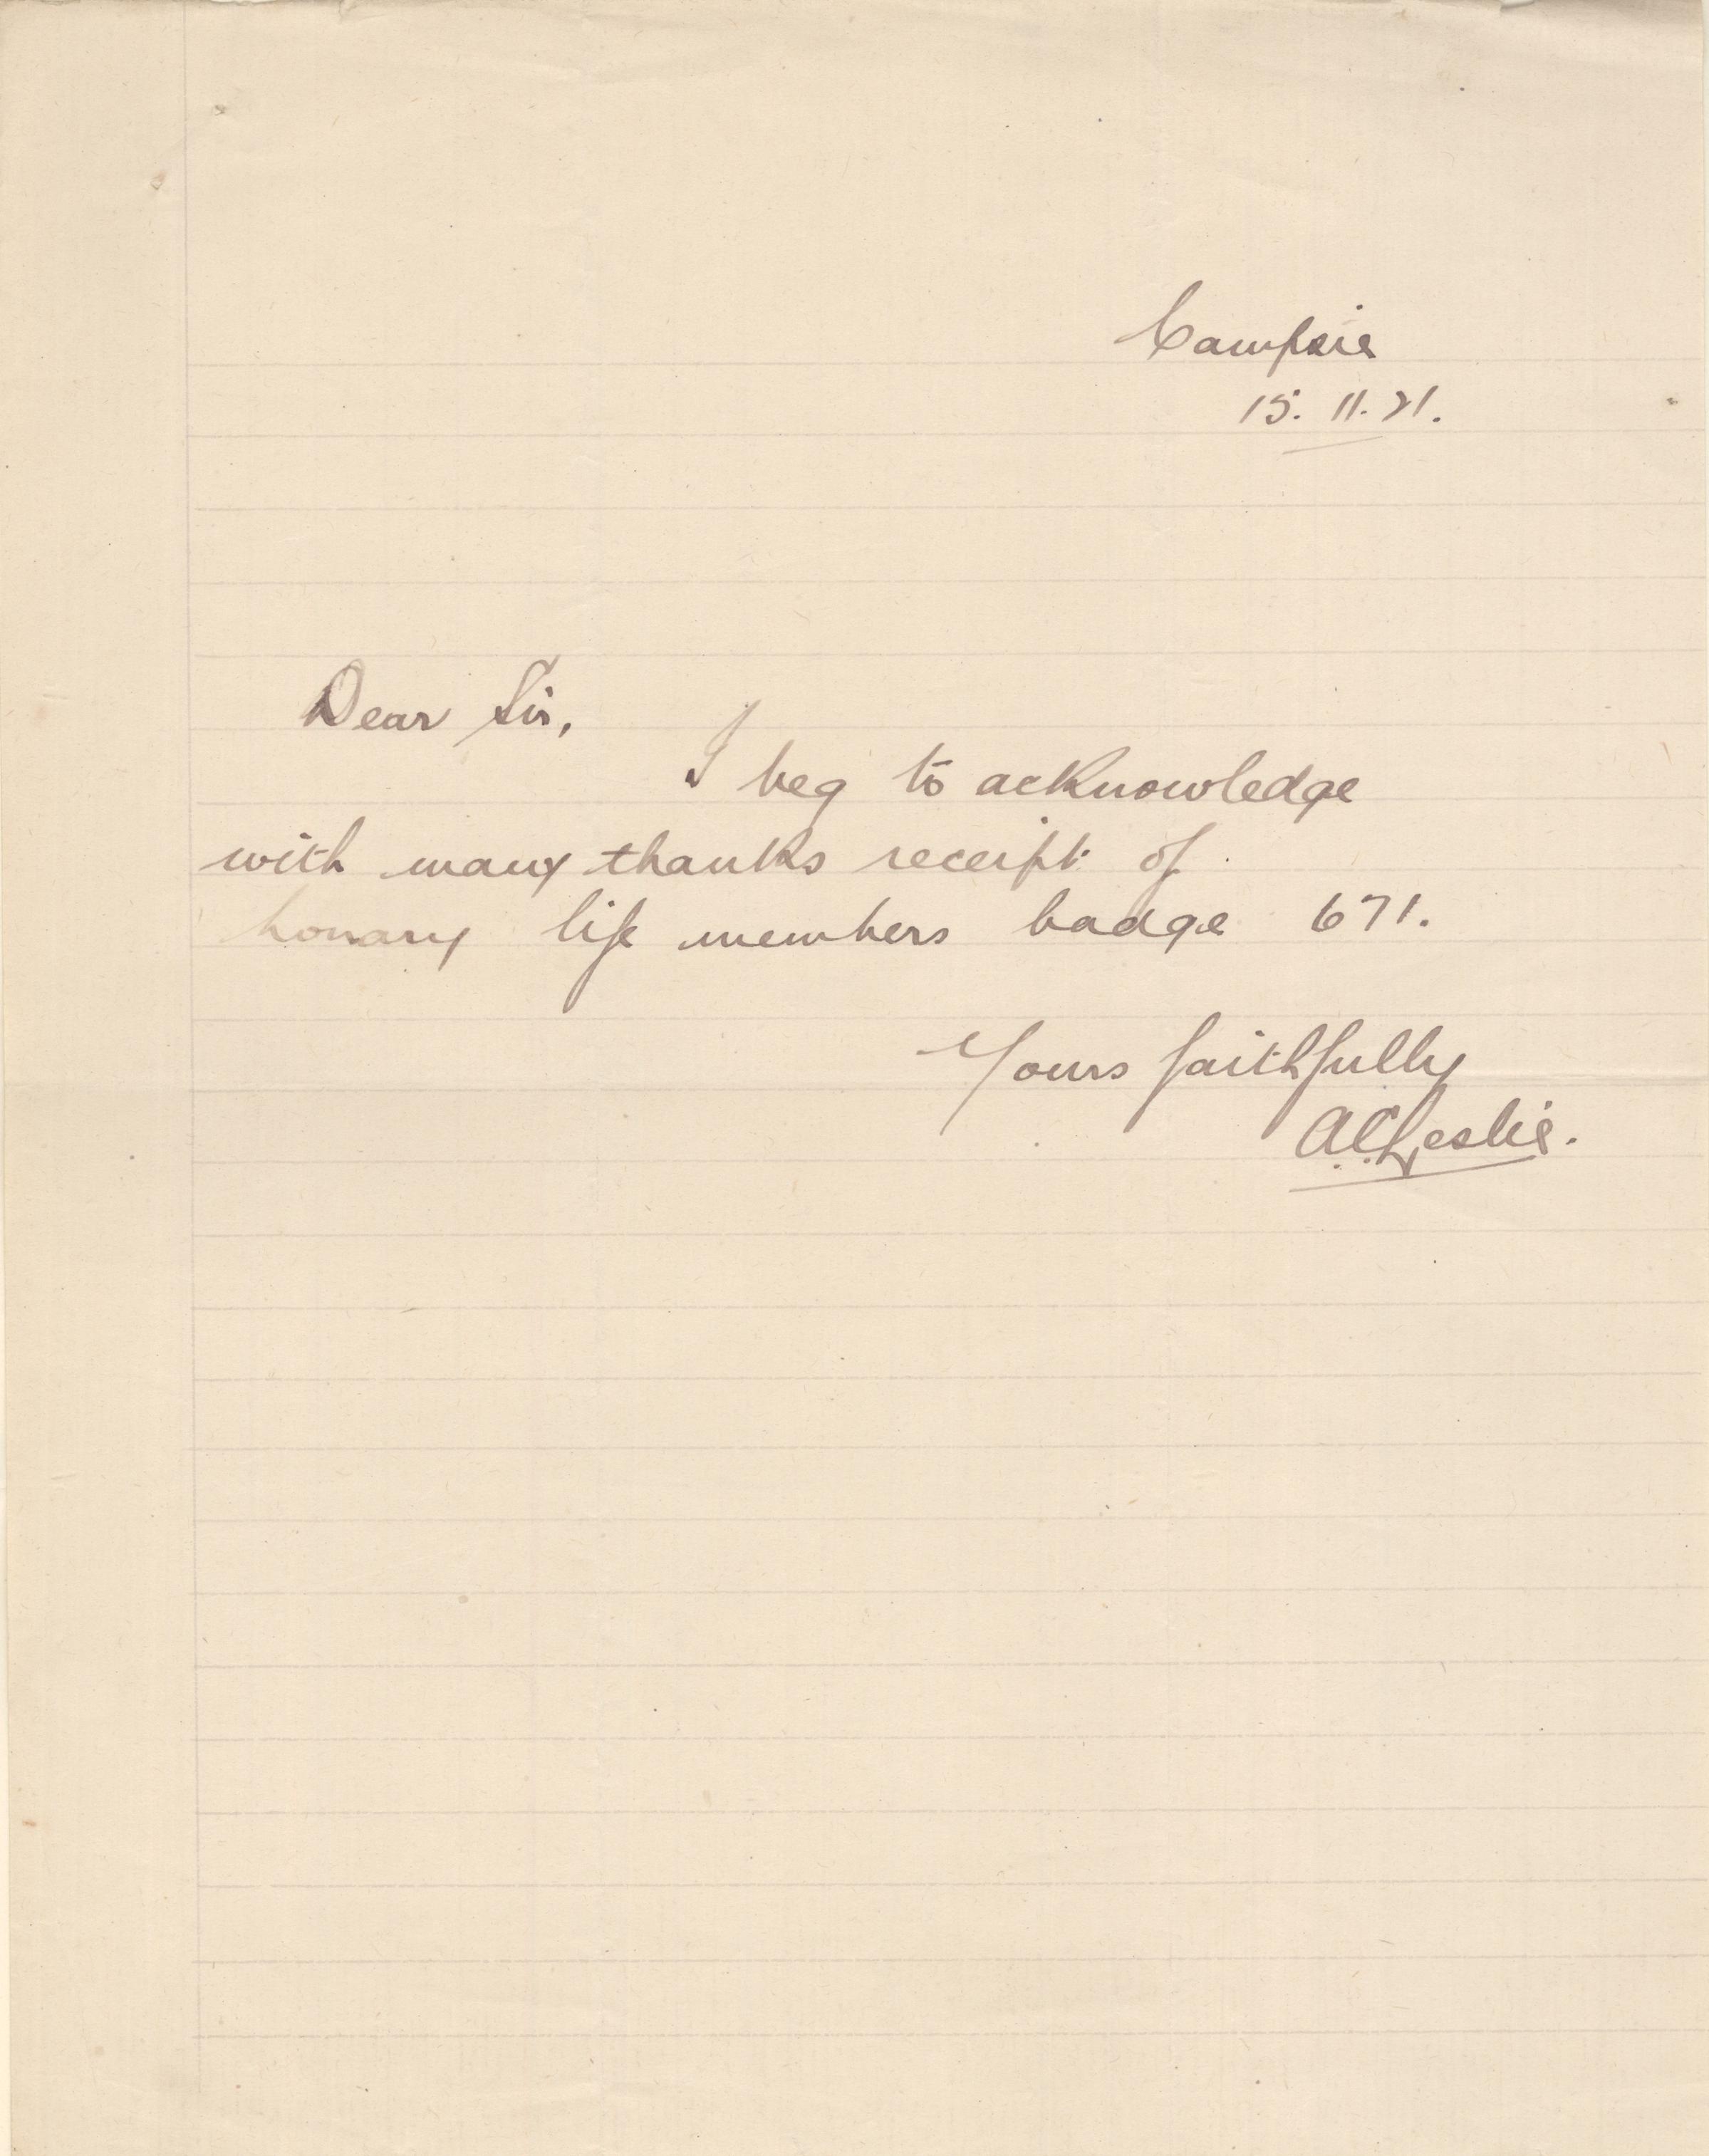 Campsie
15. 11. 21.
Dear Sir,
I beg to acknowledge
with many thanks receipt of
honary life members badge 671.
Yours faithfully
A.C. Leslie.